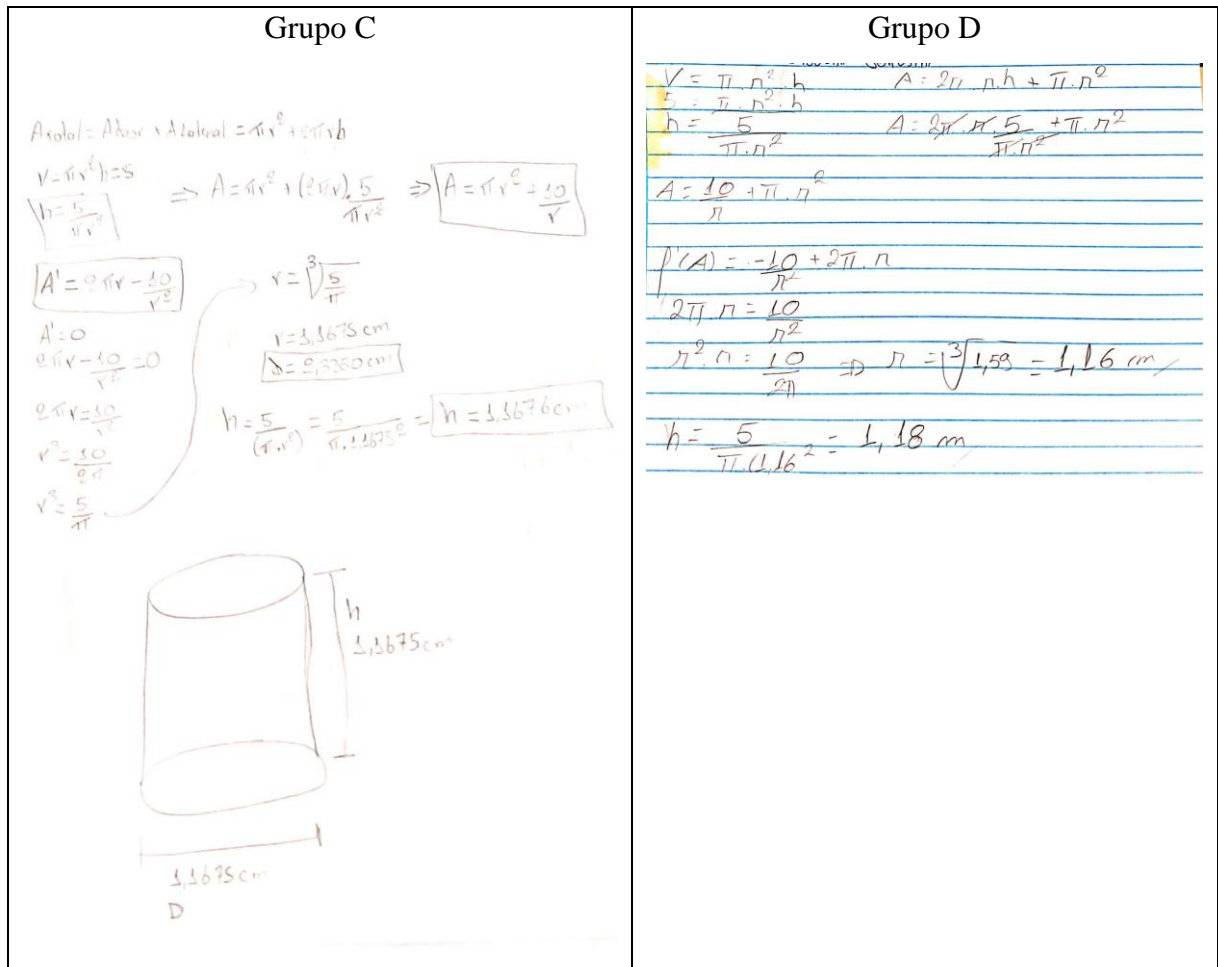 Grupo C
A total = A base + A lateral = πr² + 2πrh
V = πr²h = 5
h = 5/πr²
⇒ A = πr² + (2πr).5/πr² ⇒ A = πr² + 10/r
A' = 2πr - 10/r²
A' = 0
2πr - 10/r² = 0
2πr = 10/r²
r³ = 10/2π
r³ = 5/π
r = ∛(5/π)
r = 1,1675 cm
D = 2,3350 cm
h = 5/(π.r²) = 5/π.1,1675² = h = 1,1676 cm
h
1,1675 cm
1,1675 cm
D
Grupo D
V = π.r².h A = 2π r.h + π.r²
5 = π.r².h
h = 5/π.r² A = 2π.r.5/π.r² + π.r²
A = 10/r + π.r²
f'(A) = -10/r² + 2π.r
2π.r = 10/r²
r².r = 10/2π ⇒ r = ∛1,59 = 1,16 cm
h = 5/π.(1,16² = 1,18 m